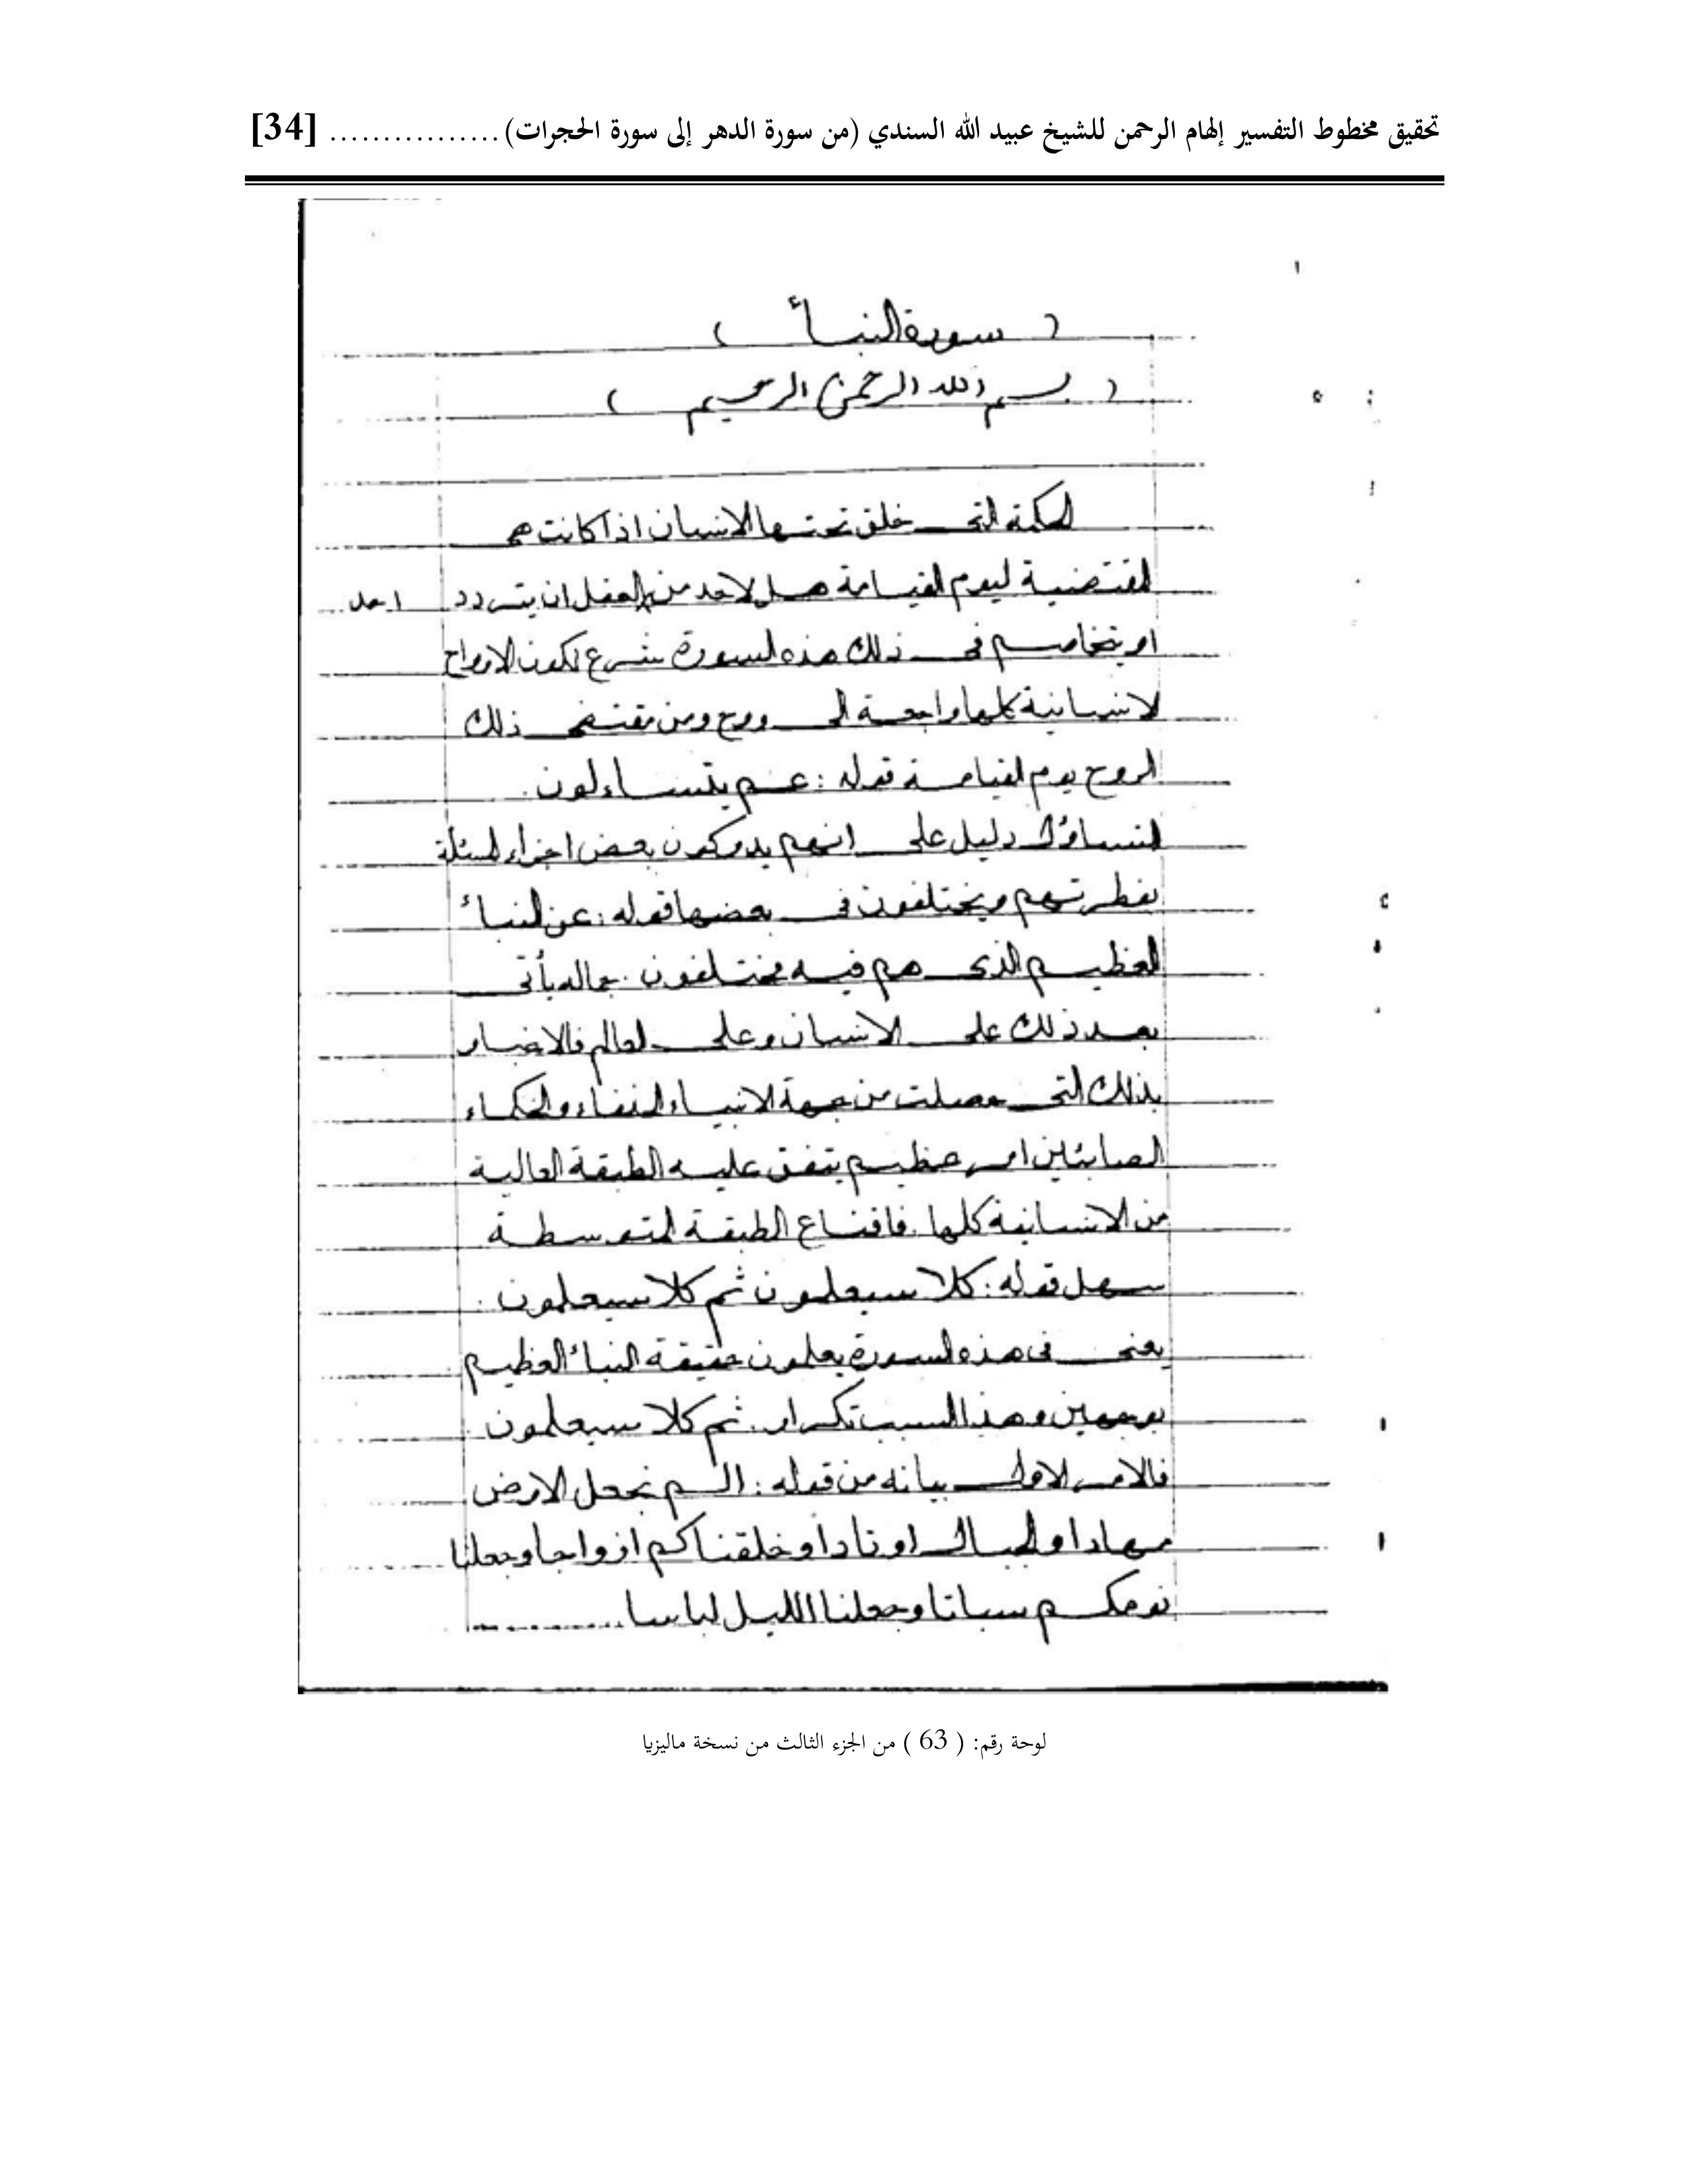 تحقيق مخطوط التفسير إلهام الرحمن للشيخ عبيد الله السندي (من سورة الدهر إلى سورة الحجرات)................ [34]
( سورة النبأ )
( بسم الله الرحمن الرحيم )
الحكمة التى خلق تحتها الانسان اذا كانت هى
المقتضية ليوم القيامة هل لاحد من العقل ان يتردد احد
او يتخاصم فى ذلك هذه السورة شرع لكون الارواح
الانسانية كلها راجعة الى روح ومن مقتضى ذلك
الروح يوم القيامة قوله : عم يتساءلون .
التساؤل دليل على انهم يدركون بعض اجزاء المسئلة
بفطرتهم ويختلفون فى بعضها قوله : عن النباء
العظيم الذى هم فيه مختلفون . يأتى
بعد ذلك على الانسان وعلى العالم فالاخبار
بذلك التى حصلت من جهة الانبياء الحنفاء والحكماء
الصابئين امر عظيم يتفق عليه الطبقة العالية
من الانسانية كلها . فاقناع الطبقة المتوسطة
سهل قوله : كلا سيعلمون ثم كلا سيعلمون .
يعنى فى هذه السورة يعلمون حقيقة النباء العظيم
بوجهين وهذا السبب تكرار : ثم كلا سيعلمون
فالامر الاول بيانه من قوله : الم نجعل الارض
مهادا والجبال اوتادا وخلقناكم ازواجا وجعلنا
نومكم سباتا وجعلنا الليل لباسا ........
لوحة رقم: ( 63 ) من الجزء الثالث من نسخة ماليزيا